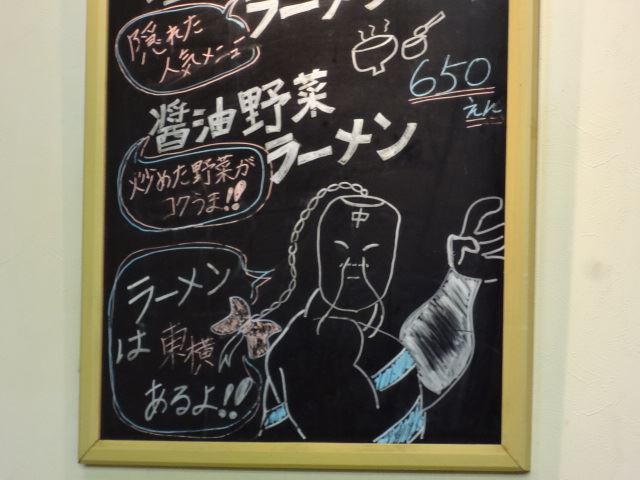 ラーメン
隠れた
人気メニュー
650
えん
醤油野菜
ラーメン
炒めた野菜が
コクうま!!
中
ラーメン
は東横
あるよ!!